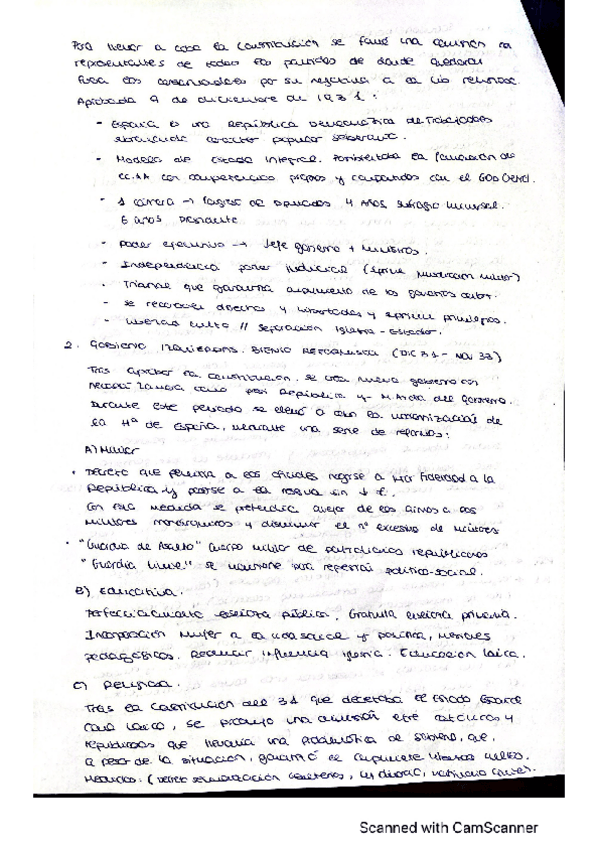 Para llevar a cabo la Constitución se formó una comisión
representantes de todos los partidos de donde quedaron
fuera los conservadores por su negativa a
Aprobada 9 de diciembre de 1931:
- España es una República Democrática de Trabajadores
popular soberanía.
- Modelo de Estado Integral. Posibilidad la formación de
CC.AA con competencias propias y compartidas con el Gob Central.
- 1 cámara → Congreso de Diputados 4 años, sufragio universal.
6 años Presidente
- Poder ejecutivo → Jefe gobierno + ministros.
- Independencia poder judicial (suprime militar)
- Tribunal que garantiza de los
- Se reconocen derechos y libertades y suprime privilegios.
- Libertad culto // Separación Iglesia - Estado.
2. GOBIERNO IZQUIERDAS. BIENIO REFORMISTA (DIC 31 - NOV 33)
Tras aprobar la constitución, se crea nuevo gobierno con
Zamora como pdte República y M. Azaña del Gobierno.
Durante este periodo se llevó a cabo la modernización de
la Hª de España, mediante una serie de reformas:
A) Militar
• Decreto que a los oficiales fidelidad a la
República y pasarse a la reserva sin ↓ €.
Con esta medida se pretendía alejar de los a los
militares monárquicos y disminuir el nº excesivo de
• "Guardia de Asalto" cuerpo militar de partidarios republicanos
"Guardia Civil" se mantiene para represión político-social.
B) Educativa.
Perfeccionamiento enseñanza pública. Gratuita enseñanza primaria.
Incorporación mujer a la y
pedagógicos. Reducir influencia iglesia. Educación laica.
C) Religiosa.
Tras la Constitución del 31 que decretaba el Estado Español
como laico, se produjo una división entre católicos y
republicanos que llevaría una problemática de que,
a pesar de la situación, garantizó el libertad cultos.
Medidas: ( secularización cementerios, ley divorcio, matrimonio civil).
Scanned with CamScanner